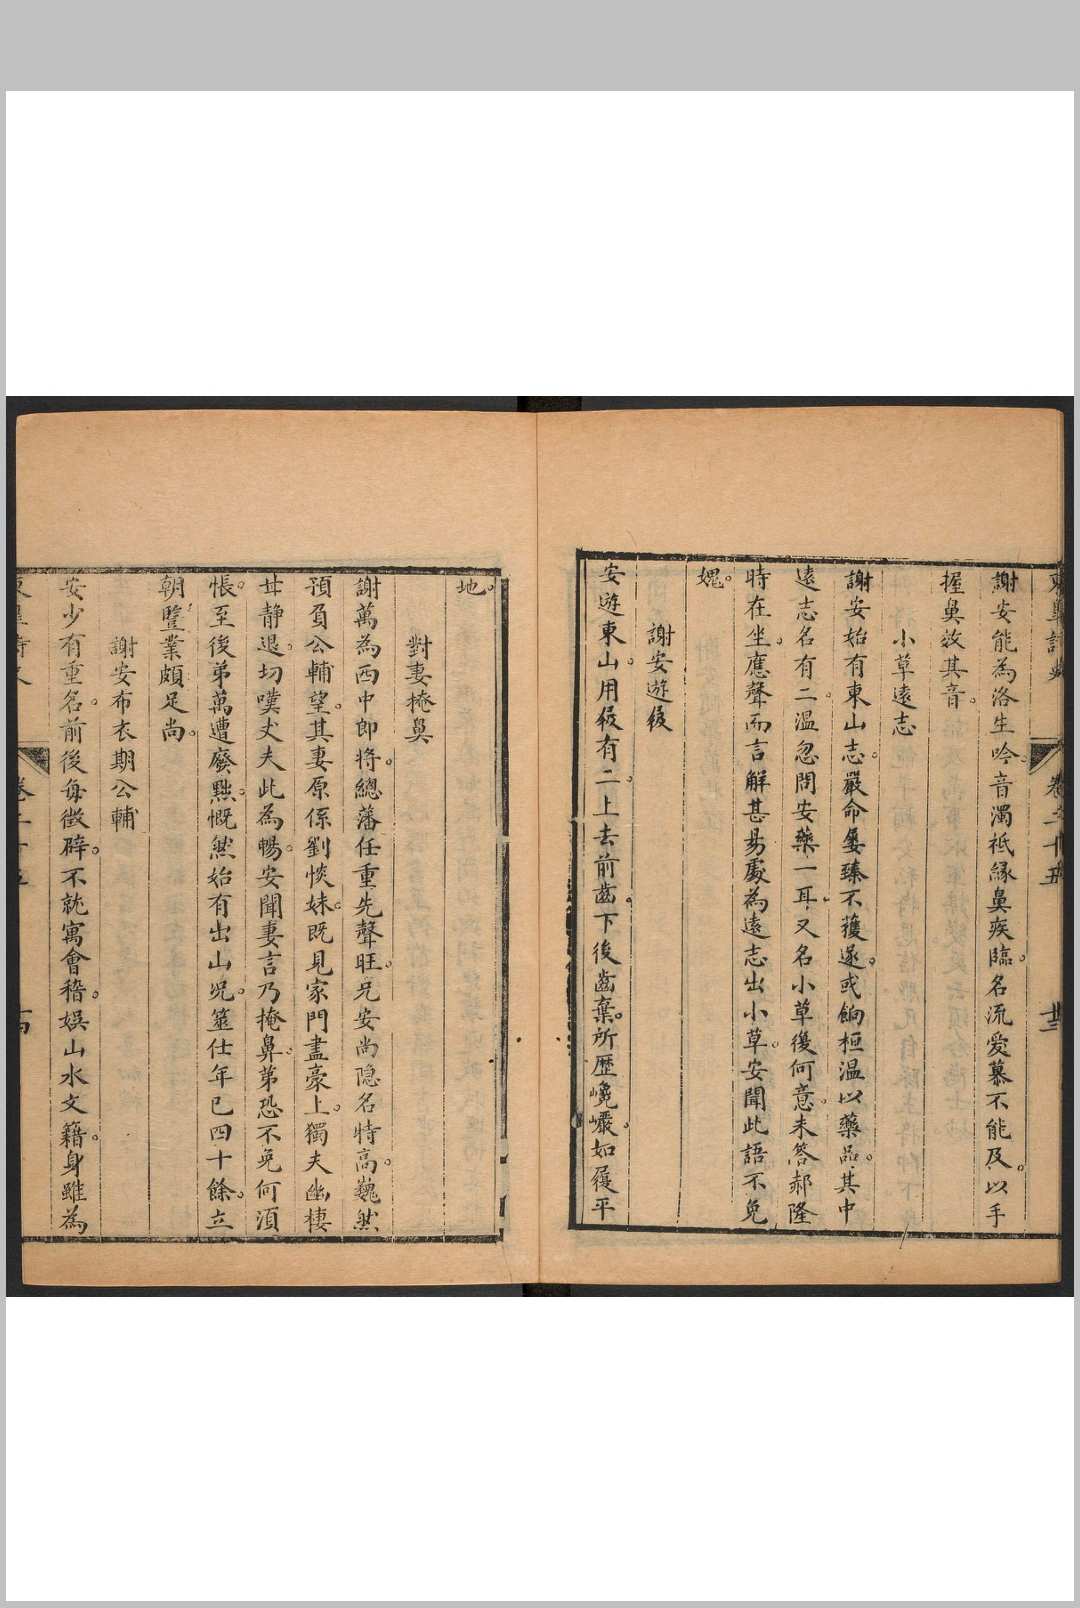 謝安能為洛生吟音濁祗緣鼻疾臨。名流愛慕不能及。以手
握鼻效其音。
小草遠志
謝安始有東山志。嚴命屡臻不獲遂。或餉桓溫以藥品。其中
遠志名有二。溫忽問安藥一耳。又名小草後何意。未答郝隆
時在坐。應聲而言解甚易。處為遠志出小草。安聞此語不免
媿。
謝安遊屐
安遊東山。用屐有二。上去前齒。下後齒棄。所歷巉巖。如履平
地。
對妻掩鼻
謝萬為西中郎將。總藩任重先聲旺。兄安尚隐名特高。巍然
預負公輔望。其妻原係劉惔妹。既見家門盡豪上。獨夫幽棲
甘靜退。切嘆丈夫此為暢。安聞妻言乃掩鼻。第恐不免何須
悵。至後弟萬遭廢黜。慨然始有出山况。筮仕年已四十餘。立
朝豐業頗足尚。
謝安布衣期公輔
安少有重名。前後每徵辟。不就寓會稽。娛山水文籍。身雖為
卷二十五